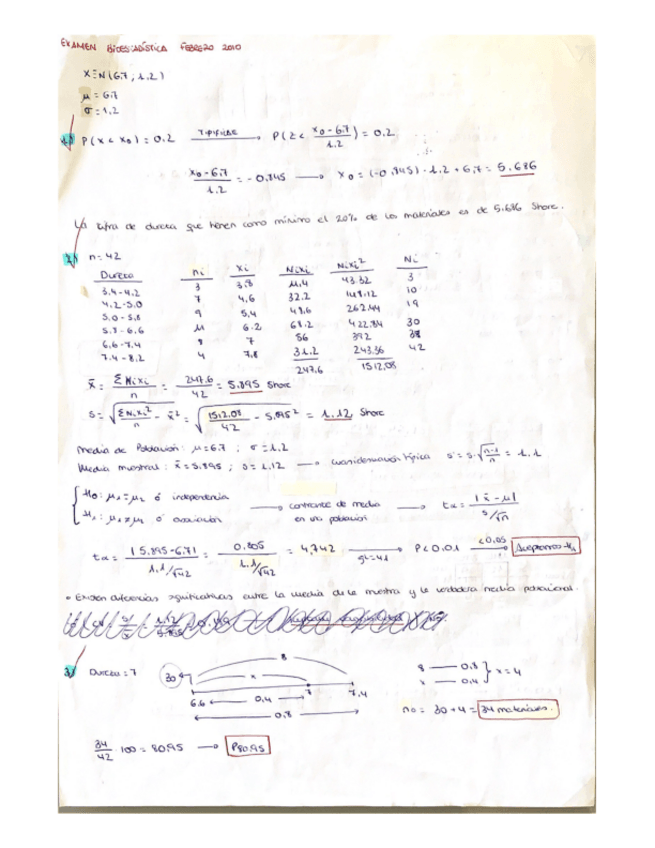 EXAMEN BIOESTADÍSTICA FEBRERO 2010
X≡N(6.7 ; 1.2)
μ = 6.7
σ = 1.2
1) P(x < x₀) = 0.2 TIPIFICAR → P(Z < (x₀ - 6.7)/1.2) = 0.2
(x₀ - 6.7)/1.2 = -0.845 → x₀ = (-0.845) · 1.2 + 6.7 = 5.686
La cifra de dureza que tienen como mínimo el 20% de los materiales es de 5.686 Shore.
2) n = 42
Dureza ni xi Nixi Nixi² Ni
3,4-4,2 3 3,8 11,4 43.32 3
4,2-5,0 7 4,6 32.2 148,12 10
5,0-5,8 9 5,4 48,6 262.44 19
5,8-6,6 11 6.2 68.2 422,84 30
6,6-7,4 8 7 56 392 38
7,4-8,2 4 7,8 31.2 243.36 42
247,6 1512,08
x̄ = ΣNixi/n = 247.6/42 = 5,895 Shore
s = √(ΣNixi²/n - x̄²) = √(1512.08/42 - 5,895²) = 1.12 Shore
Media de Población: μ = 6.7 ; σ = 1.2
Media muestral: x̄ = 5.895 ; s = 1.12 → cuasidesviación típica s' = s·√((n-1)/n) = 1.1
H₀: μ₁ = μ₂ ó independencia → contraste de media → tα = |x̄ - μ|/(s/√n)
H₁: μ₁ ≠ μ₂ ó asociación en una población
tα = |5.895 - 6.7|/(1.1/√42) = 0.805/(1.1/√42) = 4,742 → gl=41 P<0.01 <0,05 → Aceptamos H₁
• Existen diferencias significativas entre la media de la muestra y la verdadera media poblacional.
3) Dureza = 7 30 8 x 7 7,4 8 — 0,8 x — 0,4 } x = 4
6.6 0,4 0,8 no = 30 + 4 = 34 materiales.
34/42 · 100 = 80.95 → P80.95